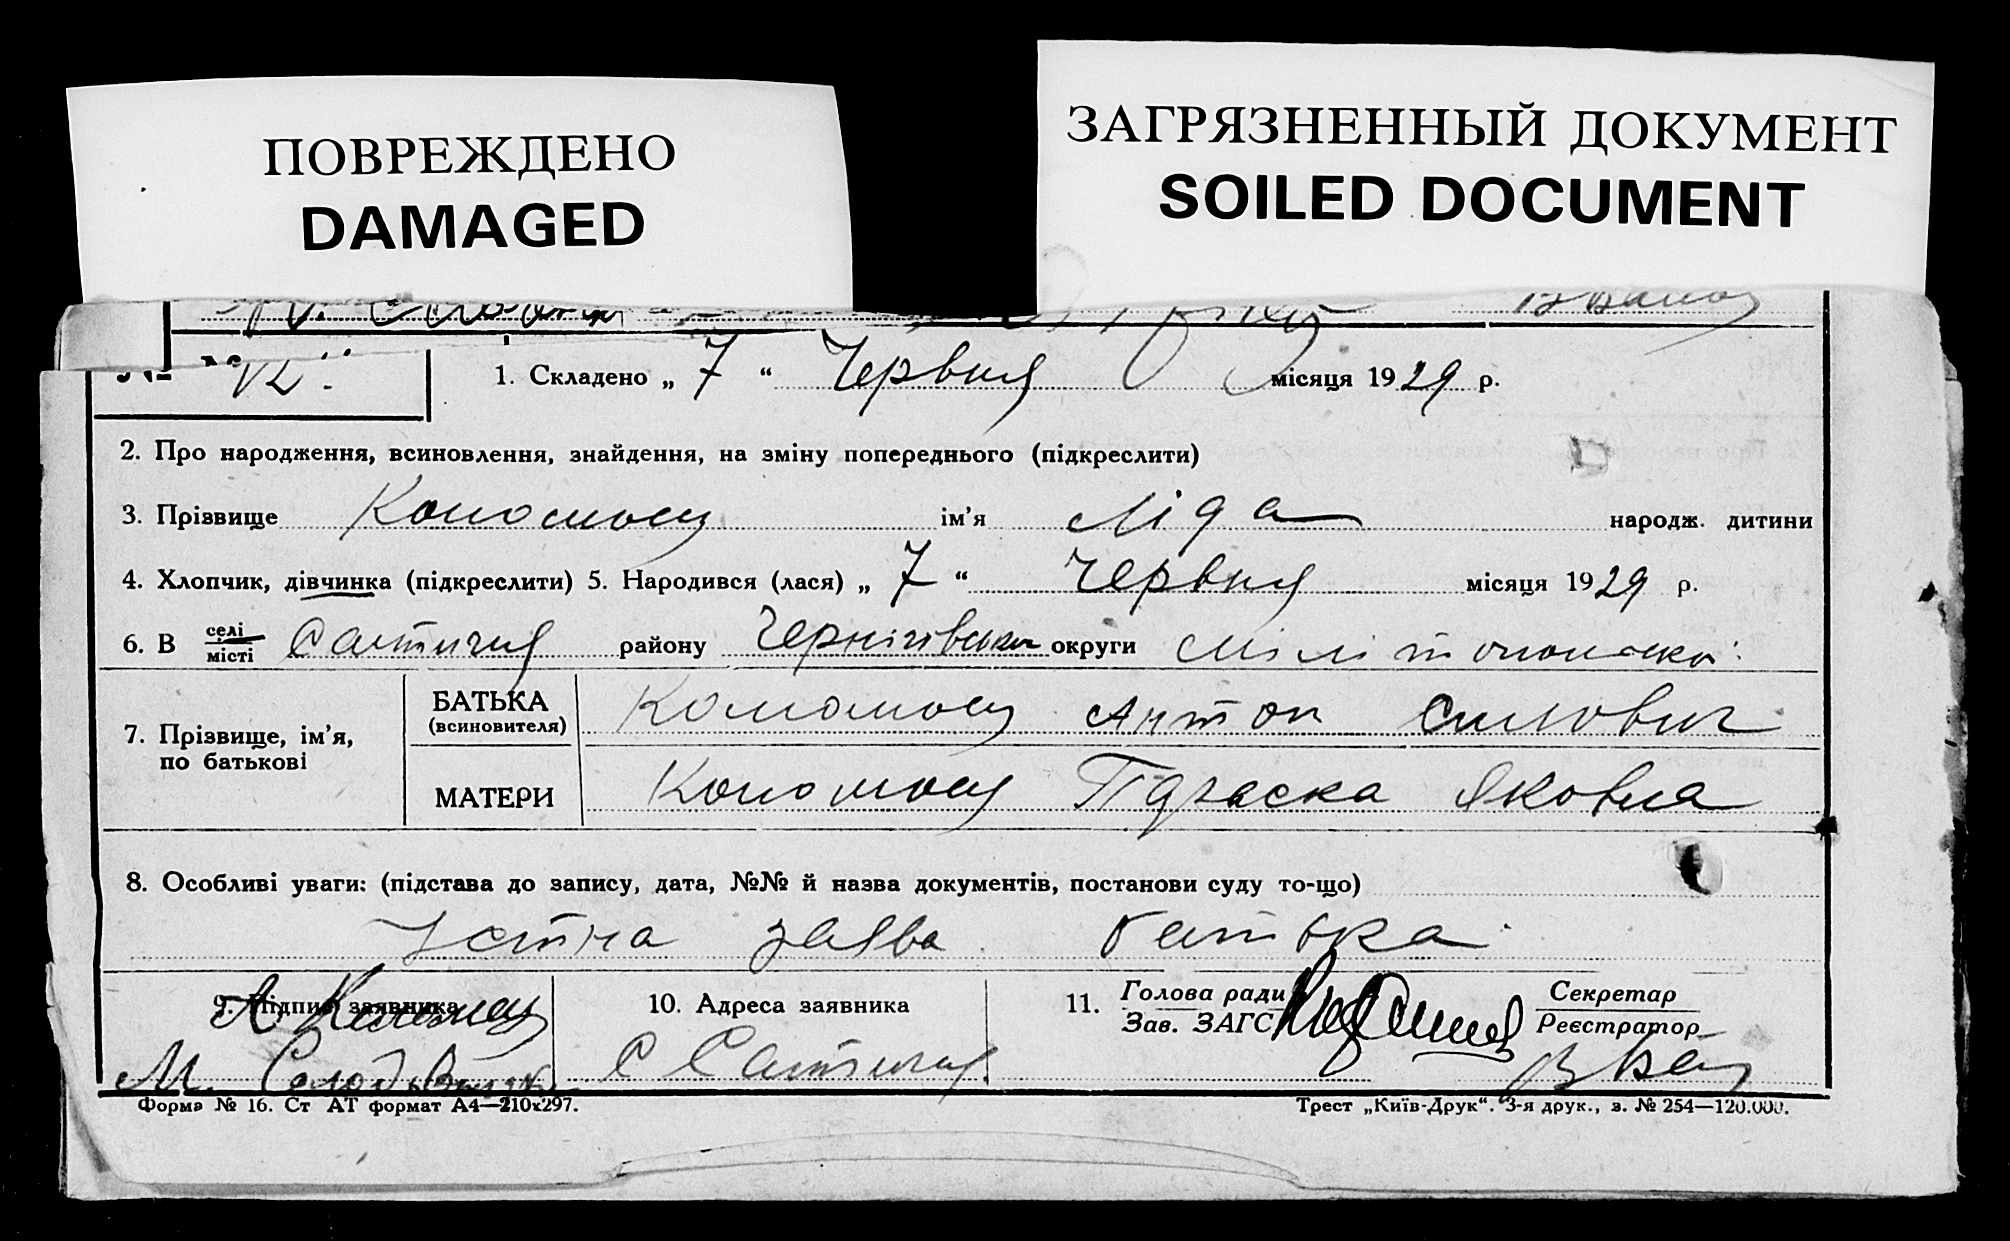 ПОВРЕЖДЕНО
DAMAGED
ЗАГРЯЗНЕННЫЙ ДОКУМЕНТ
SOILED DOCUMENT
№ 12. 1. Складено „ 7 “ Червня місяця 1929 р.
2. Про народження, всиновлення, знайдення, на зміну попереднього (підкреслити)
3. Прізвище Коломоєц ім’я Ліда народж. дитини
4. Хлопчик, дівчинка (підкреслити) 5. Народився (лася) „ 7 “ Червня місяця 1929 р.
6. В селі
місті Салтичия району Чернігівськи округи Мілітопольскої
7. Прізвище, ім’я,
по батькові
БАТЬКА
(всиновителя)
Коломоєц Антон Силович
МАТЕРИ Коломоєц Яковна
8. Особливі уваги: (підстава до запису, дата, №№ й назва документів, постанови суду то-що)
Устна заява батька
9. Підпис заявника
А. Коломоец
10. Адреса заявника
С Салтичия
11. Голова ради
Зав. ЗАГС
Секретар
Реєстратор
Форма № 16. Ст АТ формат А4—210х297.
Трест „Київ-Друк“. 3-я друк., з. № 254—120.000.